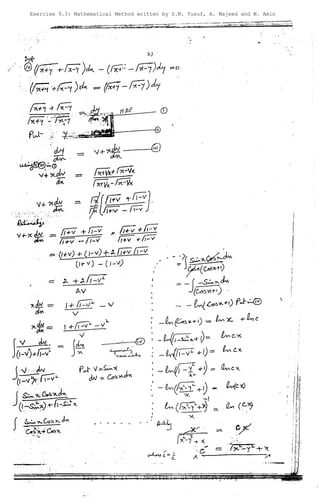 Exercise 9.3: Mathematical Method written by S.M. Yusuf, A. Majeed and M. Amin
2)
(√x+y + √x-y)dx - (√x+y - √x-y)dy = 0
(√x+y + √x-y)dx = (√x+y - √x-y)dy
(√x+y + √x-y)/(√x+y - √x-y) = dy/dx HDE — ①
Put y
dy/dx = v + x dv/dx
v + x dv/dx = (√x+vx + √x-vx)/(√x+vx - √x-vx)
v + x dv/dx = √x/√x [(√1+v + √1-v)/(√1+v - √1-v)]
v + x dv/dx = (√1+v + √1-v)/(√1+v - √1-v) × (√1+v + √1-v)/(√1+v + √1-v)
= ((1+v) + (1-v) + 2√1+v √1-v)/((1+v) - (1-v))
= (2 + 2√1-v²)/2v
x dv/dx = (1+√1-v²)/v - v
x dv/dx = (1+√1-v² - v²)/v
∫ v dv/((1-v²)+√1-v²) = ∫ dx/x
∫ v dv/((1-v²)+√1-v²) Put v = Sinx
dv = Cosx dx
∫ Sinx Cosx dx/((1-Sin²x)+√1-Sin²x)
∫ Sinx Cosx dx/(Cos²x + Cosx)
= ∫ Sinx Cosx dx/(Cosx(Cosx+1))
= -∫ -Sinx dx/(Cosx+1)
= -ln(Cosx+1) Put in
-ln(Cosx+1) = lnx + lnc
-ln(√1-Sin²x + 1) = lncx
-ln(√1-v² + 1) = lncx
-ln(√1-y²/x² + 1) = lncx
-ln(√x²-y²/x + 1) = ln(cx)
ln(√x²-y²+x/x)⁻¹ = ln(cx)
x/(√x²-y²+x) = cx
= √x²-y² + x